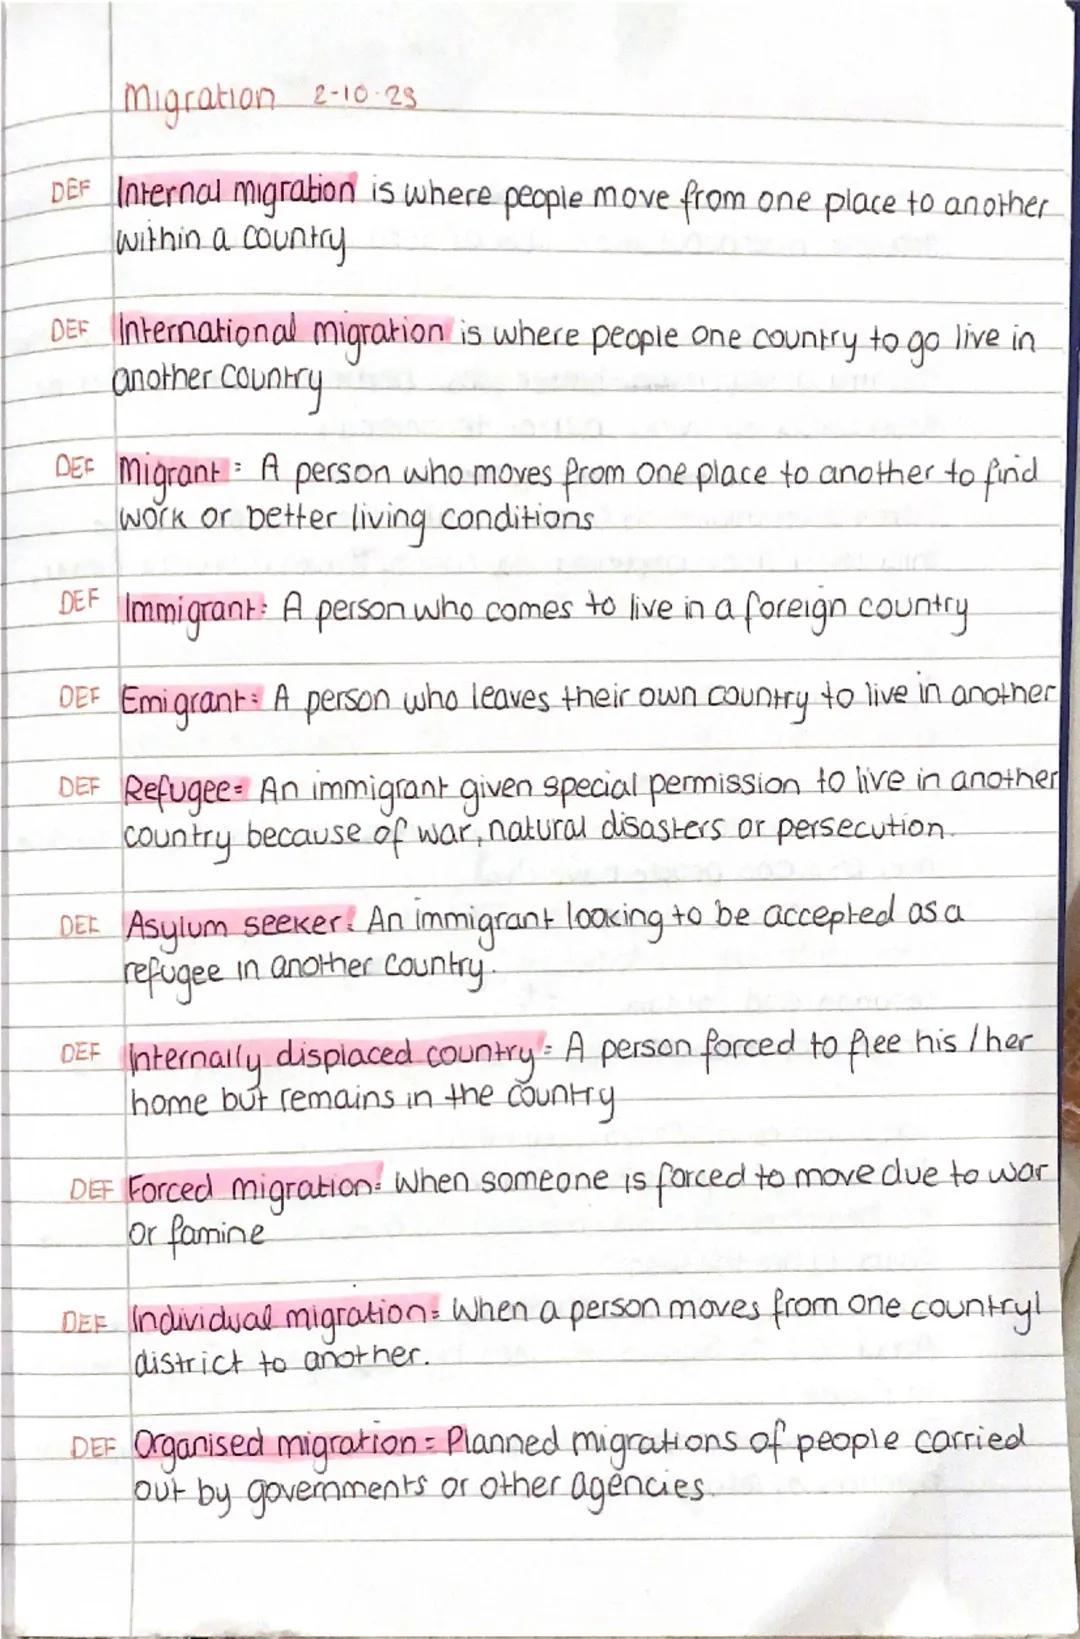 Migration 2-10-23
DEF Internal migration is where people move from one place to another
within a country
DEF International migration is where people one country to go live in
another country
DEF Migrant: A person who moves from one place to another to find
work or better living conditions
DEF Immigrant: A person who comes to live in a foreign country
DEF Emigrant: A person who leaves their own country to live in another
DEF Refugee: An immigrant given special permission to live in another
country because of war, natural disasters or persecution.
DEF Asylum seeker: An immigrant looking to be accepted as a
refugee in another country.
DEF Internally displaced country: A person forced to flee his/her
home but remains in the country
DEF Forced migration: When someone is forced to move due to war
or famine
DEF Individual migration: When a person moves from one country/
district to another.
DEF Organised migration: Planned migrations of people carried
out by governments or other agencies.